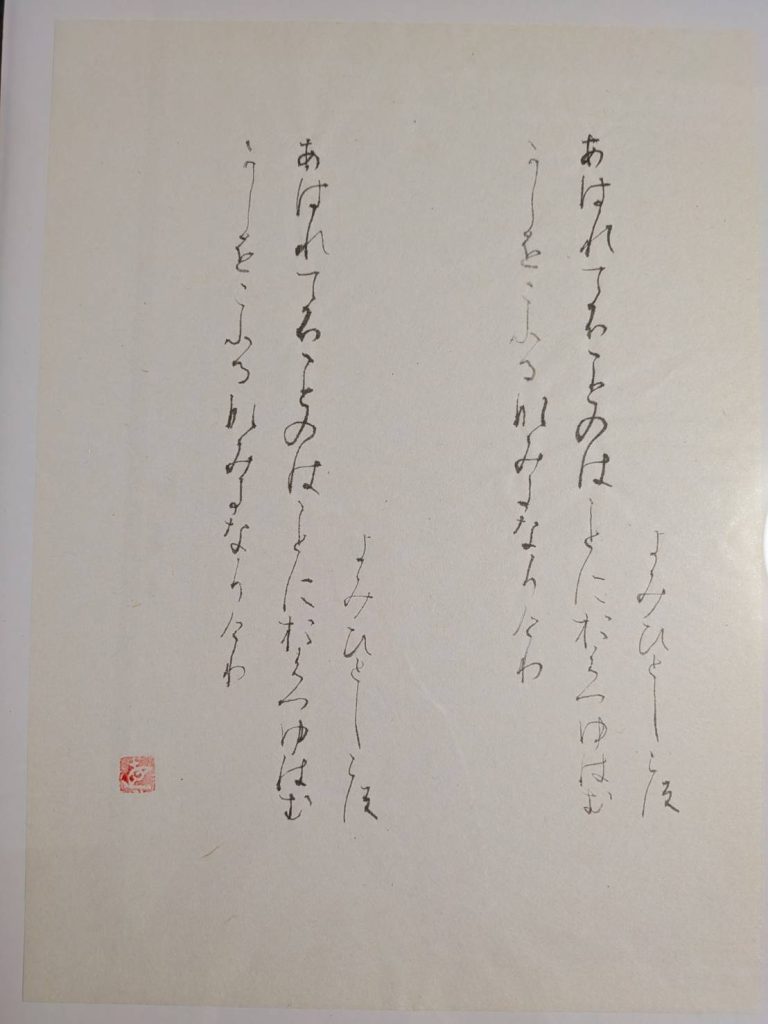 よみひとしらす
あはれてふことのはことにおくつゆはむ
かしをこふるなみたなりけり
よみひとしらす
あはれてふことのはことにおくつゆはむ
かしをこふるなみたなりけり